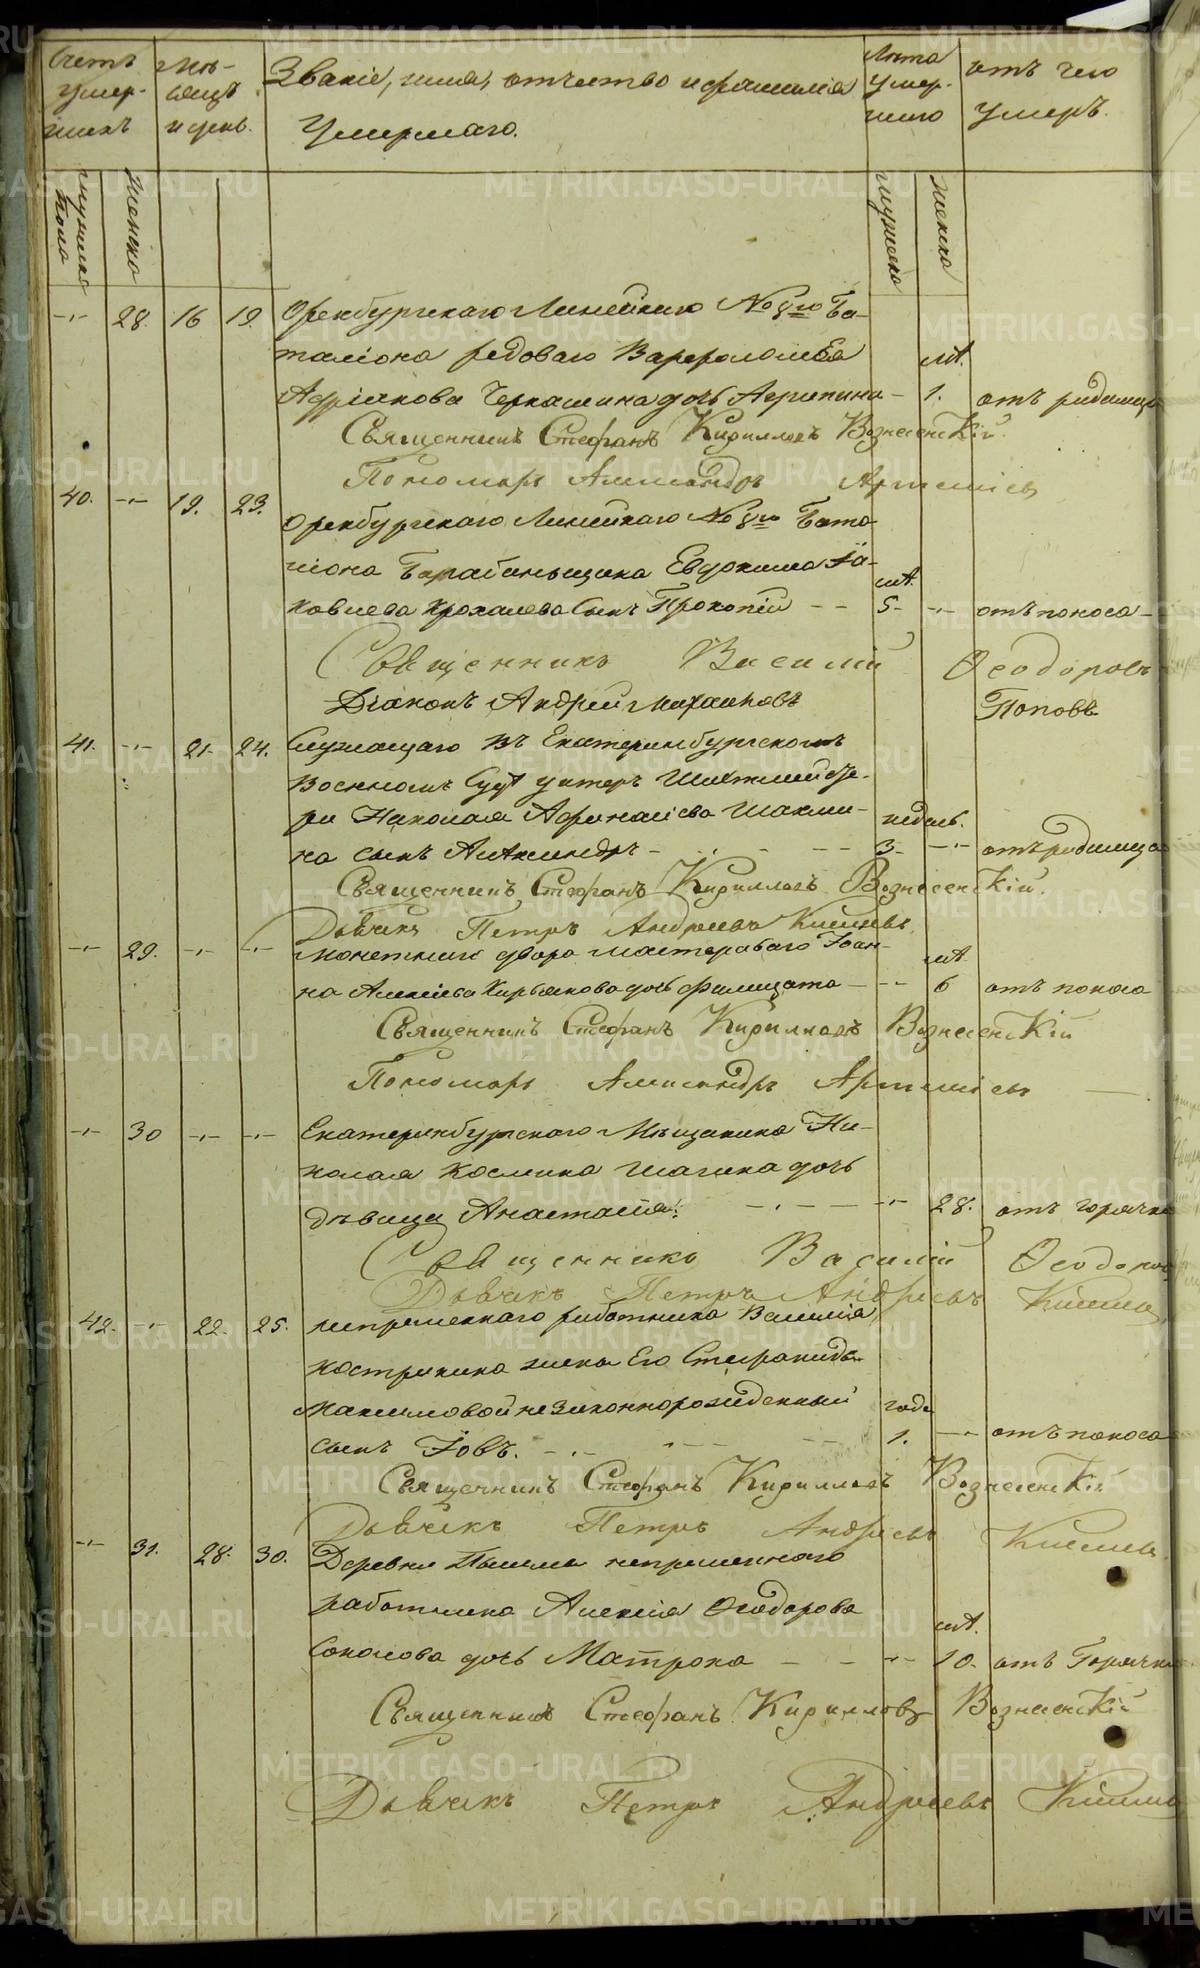 Счетъ умер-шихъ
Мѣ-сяцъ и день.
Званіе, имя, отчество и фамилія
Умершаго.
Лѣта умер-шаго
отъ чего умеръ.
мужеска пола
женска
мужеска
женска
-„- 28. 16 19. Оренбургскаго Линейнаго № 8го Ба-
таліона рядоваго Варфоломея лѣт.
Адріанова Черкашина дочь Агрипина – 1. отъ родимца
Священникъ Стефанъ Кирилловъ Вознесенскій.
Пономарь Александръ Артеміевъ
40. -„- 19. 23. Оренбургскаго Линейнаго № 8го Бата-
ліона Барабаньщика Евдокима Іа- лѣт.
ковлева Крохалева Сынъ Прокопій – – 5. -„- отъ поноса –
Священникъ Василій Ѳеодоровъ
Діаконъ Андрей Михайловъ Поповъ
41. -„- 21. 24. Служащаго въ Екатеринбургскомъ
Военномъ Судѣ унтеръ Шихтмейсте-
ра Николая Афанасіева Шакми- недѣль.
на сынъ Александръ – 3. -„- отъ родимца
Священникъ Стефанъ Кирилловъ Вознесенскій.
Дьячекъ Петръ Андреевъ
-„- 29. -„- -„- монетнаго двора мастероваго Іоан- лѣт.
на Алексіева Кирьякова дочь Филицата – -„- 6 отъ поноса
Священникъ Стефанъ Кирилловъ Вознесенскій
Пономарь Александръ Артеміевъ
-„- 30 -„- -„- Екатеринбургскаго Мѣщанина Ни-
колая Космина Шагина дочь
дѣвица Анастасія. -„- 28. отъ горячки
Священникъ Василій Ѳеодоровъ
Дьячекъ Петръ Андреевъ
42. -„- 22. 25. непремѣннаго работника Василія
Кострикина жена Его Стефанида
Максимовой незаконнорожденный года
сынъ Іовъ. 1. -„- отъ поноса
Священникъ Стефанъ Кирилловъ Вознесенскій
Дьячекъ Петръ Андреевъ
-„- 31. 28. 30. Деревни Пышмы непременнаго
работника Алексія Ѳеодорова лѣт.
Соколова дочь Матрона – – -„- 10. отъ Горячки
Священникъ Стефанъ Кирилловъ Вознесенскій
Дьячекъ Петръ Андреевъ
METRIKI.GASO-URAL.RU